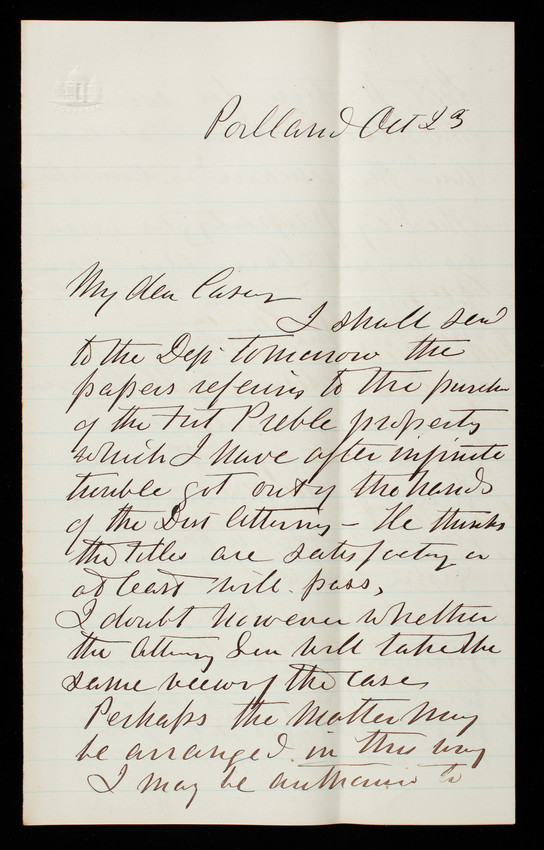 Portland Oct 23
My dear Casey
I shall send
to the Dept tomorrow the
papers referring to the purchase
of the Fort Preble property
which I have after infinite
trouble got out of the hands
of the Dist Attorney – He thinks
the titles are satisfactory or
at least will pass,
I doubt however whether
the Attorney Gen will take the
same view of the case,
Perhaps the matter may
be arranged in this way
I may be authorised to